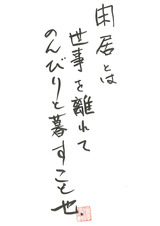 閑居とは
世事を離れて
のんびりと暮すこと也